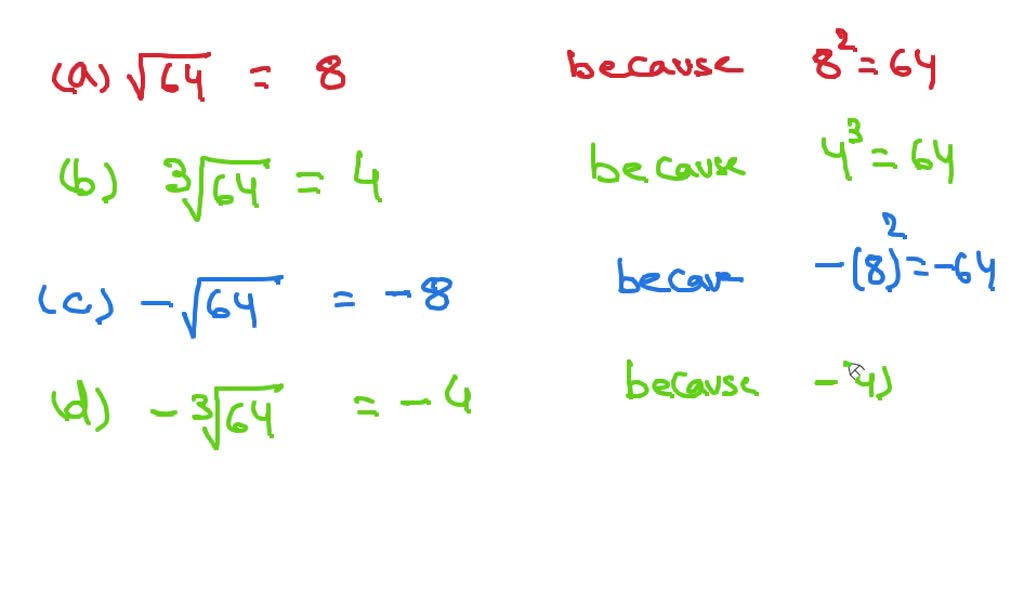 (a) √64 = 8 because 8² = 64
(b) ³√64 = 4 because 4³ = 64
(c) -√64 = -8 becau -(8)² = -64
(d) -³√64 = -4 because -4)